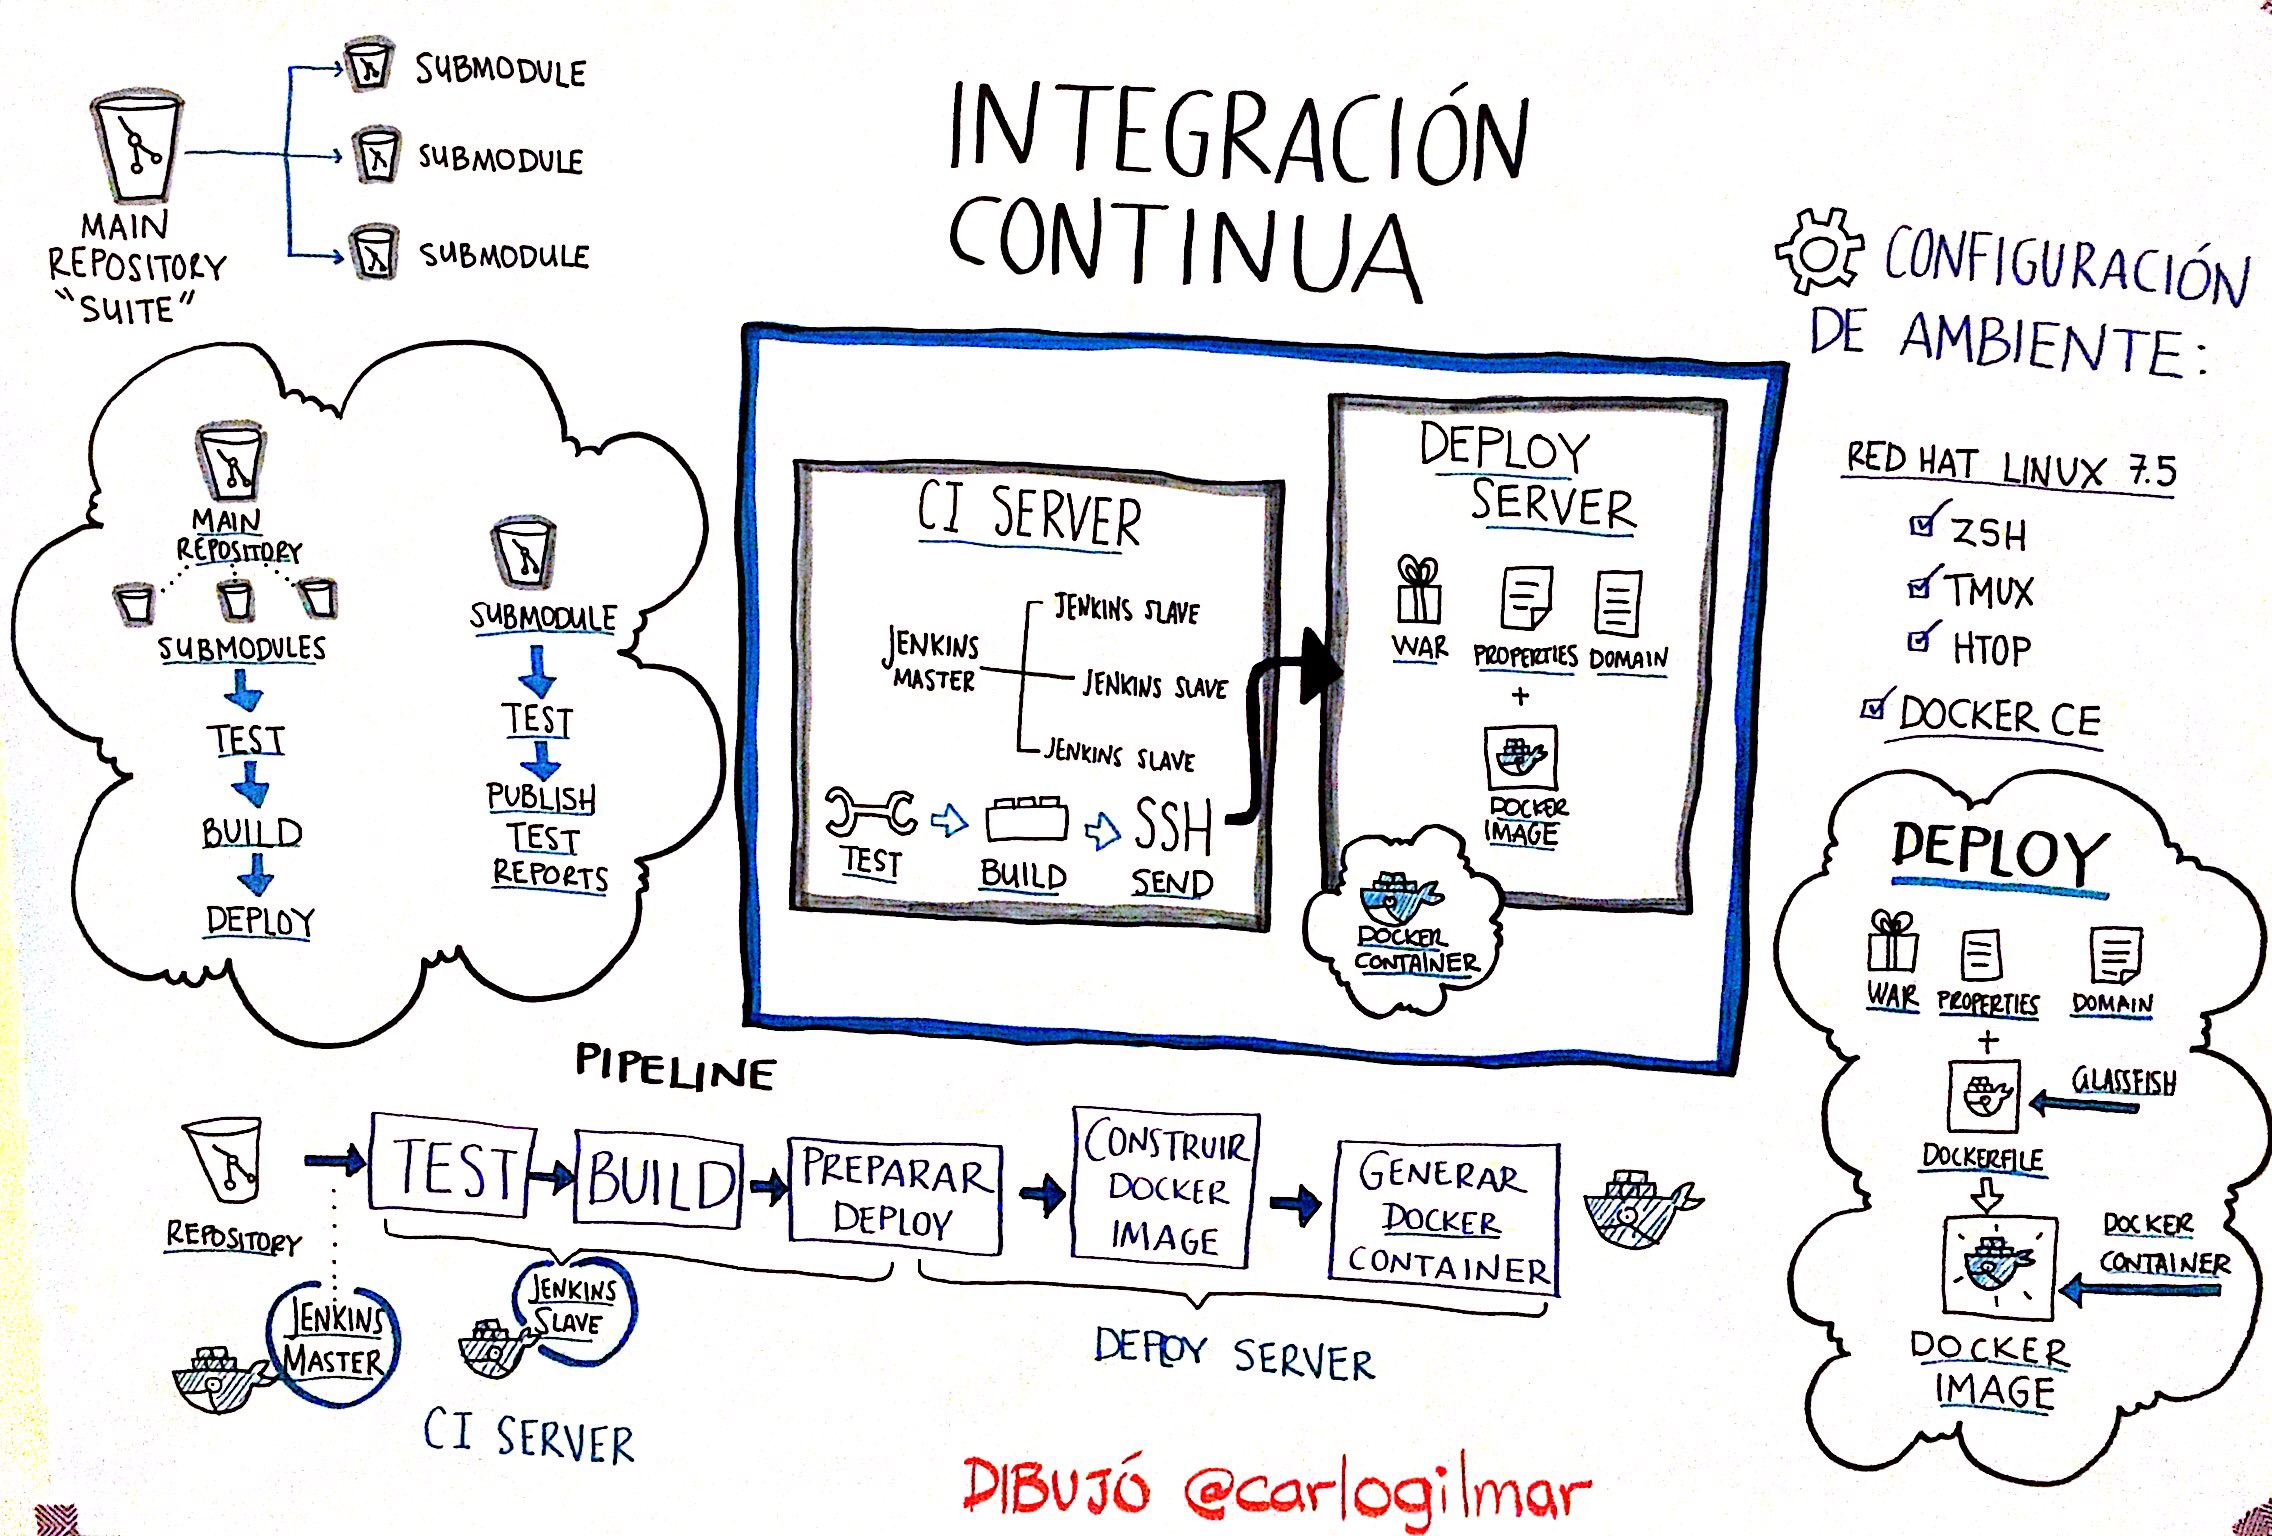 INTEGRACIÓN
CONTINUA
MAIN
REPOSITORY
"SUITE"
SUBMODULE
SUBMODULE
SUBMODULE
MAIN
REPOSITORY
SUBMODULES
TEST
BUILD
DEPLOY
SUBMODULE
TEST
PUBLISH
TEST
REPORTS
CI SERVER
JENKINS
MASTER
JENKINS SLAVE
JENKINS SLAVE
JENKINS SLAVE
TEST
BUILD
SSH
SEND
DEPLOY
SERVER
WAR
PROPERTIES
DOMAIN
+
DOCKER
IMAGE
DOCKER
CONTAINER
CONFIGURACIÓN
DE AMBIENTE:
RED HAT LINUX 7.5
ZSH
TMUX
HTOP
DOCKER CE
DEPLOY
WAR
PROPERTIES
DOMAIN
+
GLASSFISH
DOCKERFILE
DOCKER
CONTAINER
DOCKER
IMAGE
PIPELINE
REPOSITORY
TEST
BUILD
PREPARAR
DEPLOY
CONSTRUIR
DOCKER
IMAGE
GENERAR
DOCKER
CONTAINER
JENKINS
MASTER
JENKINS
SLAVE
CI SERVER
DEPLOY SERVER
DIBUJÓ @carlogilmar